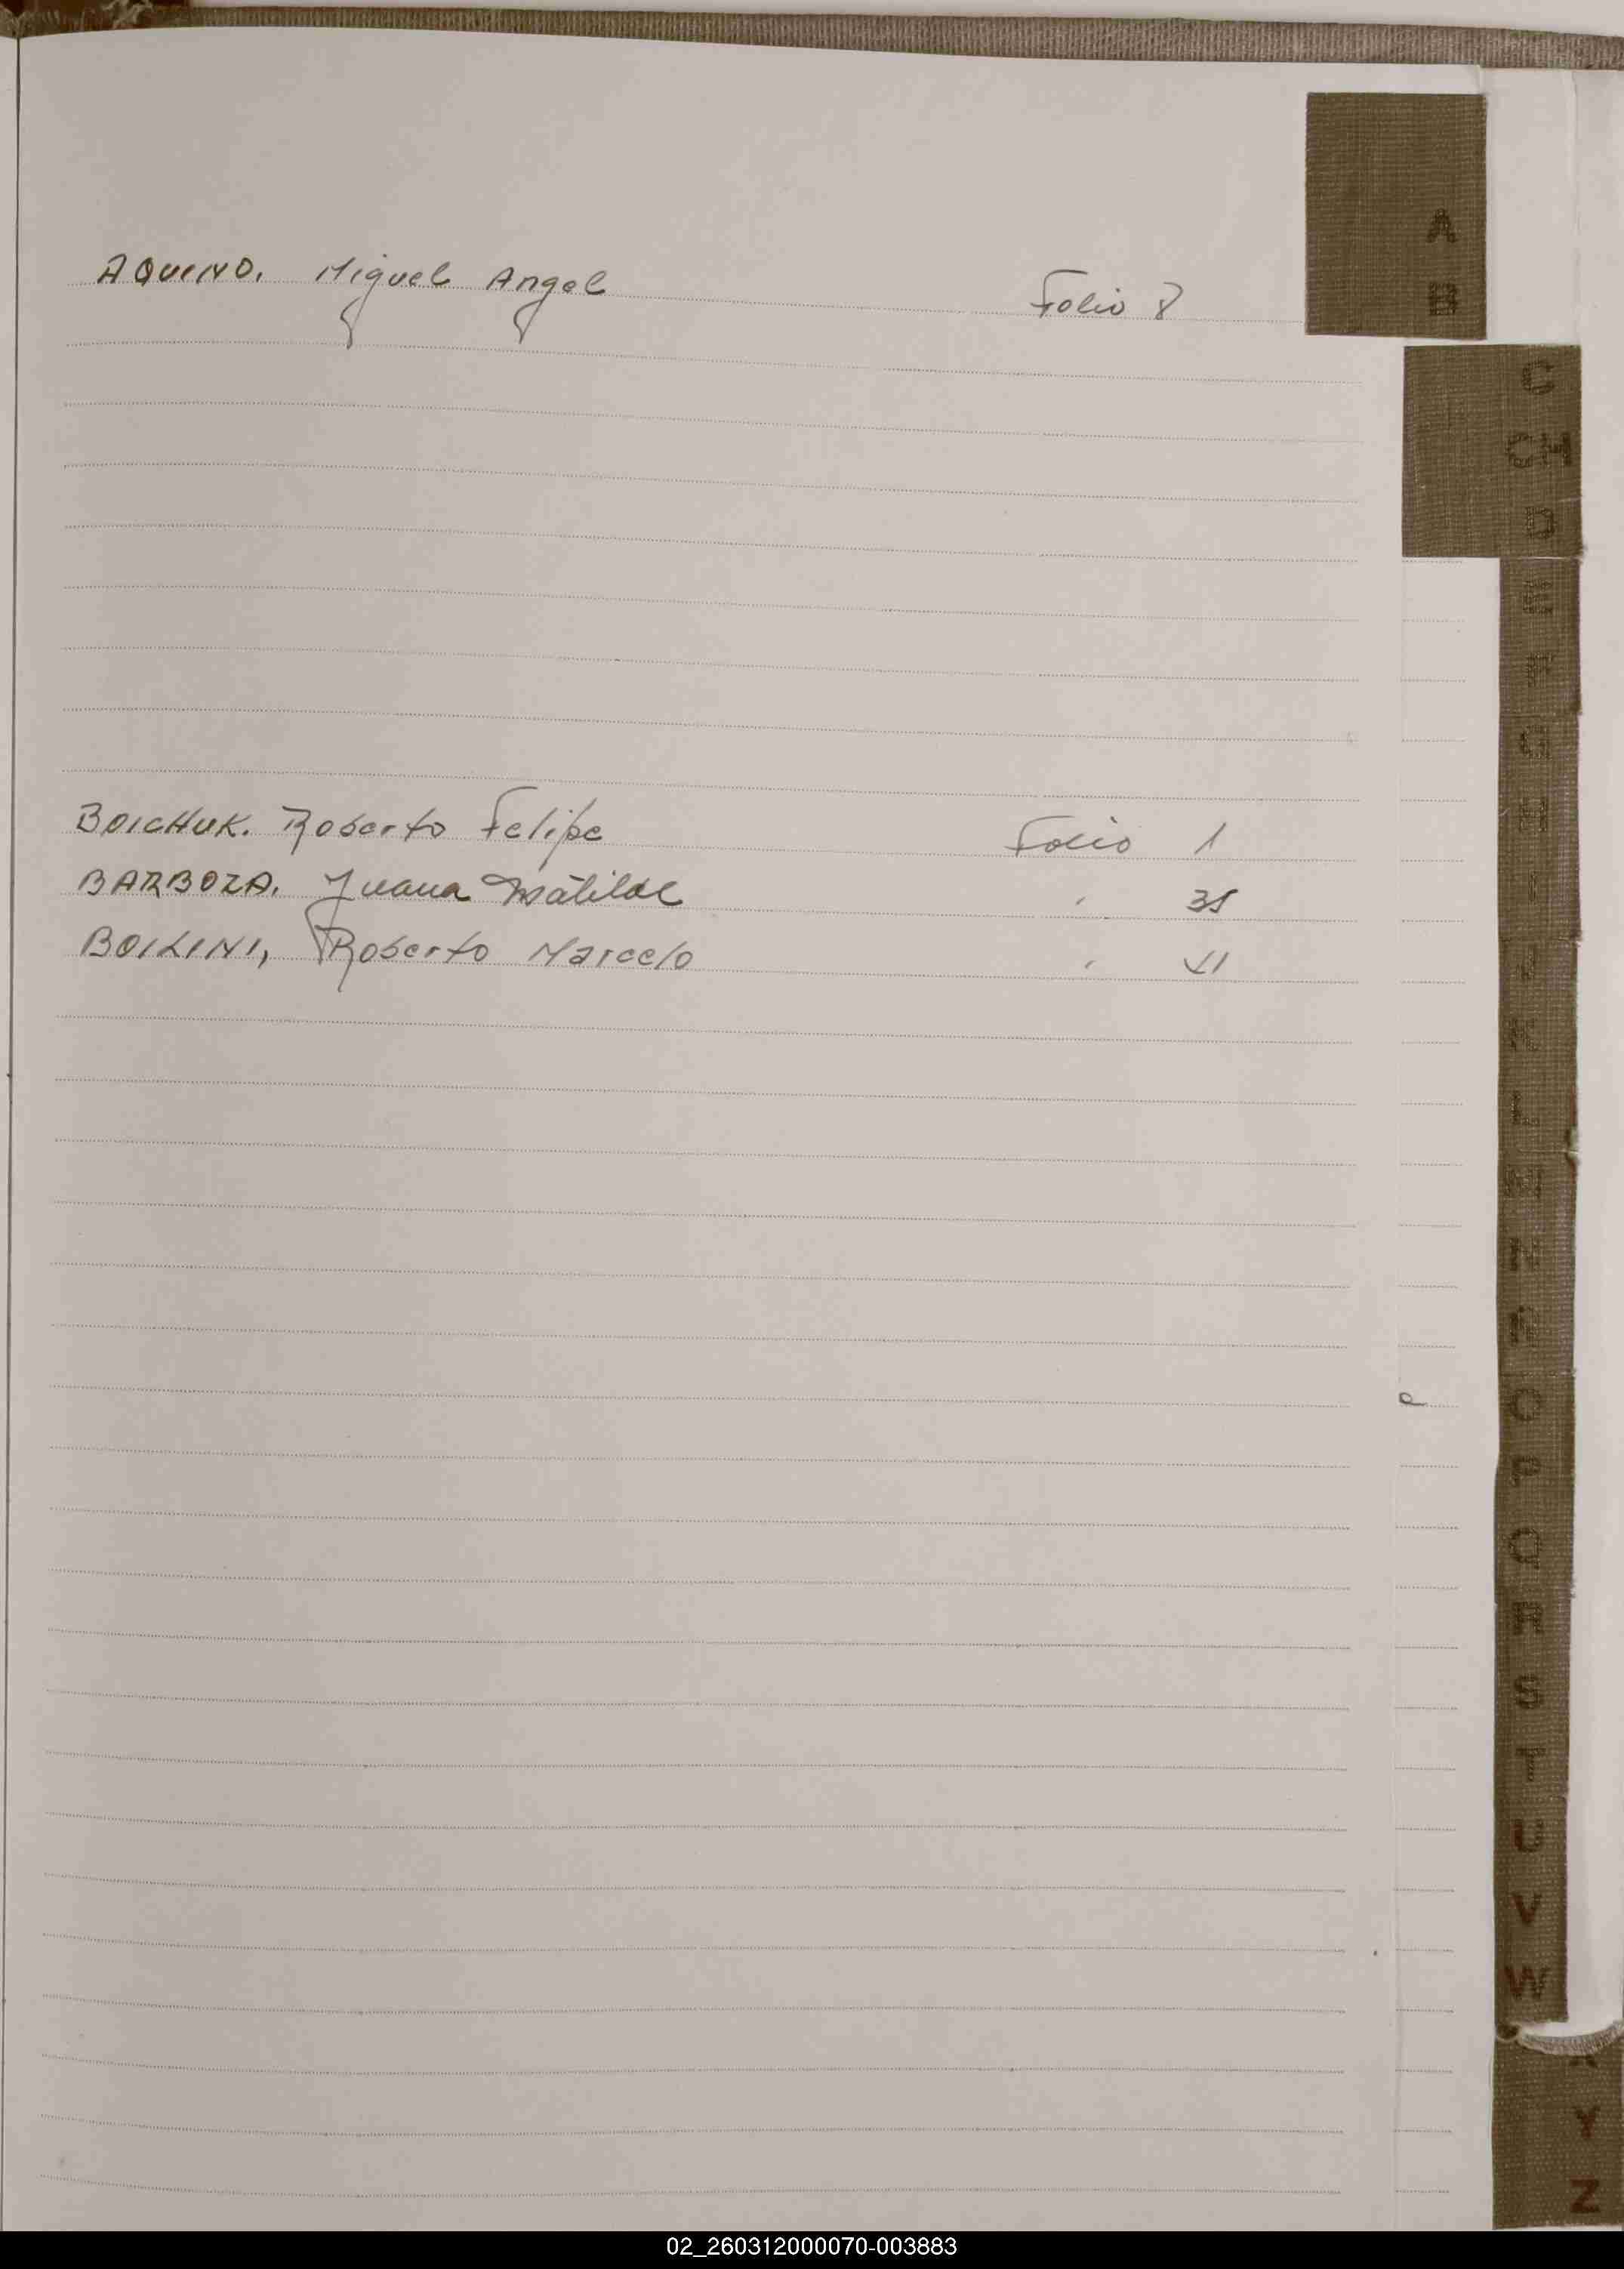 AQUINO. Miguel Angel Folio 8
BOICHUK. Roberto Felipe Folio 1
BARBOZA. Juana Matilde "
Roberto Marcelo "
A
B
C
CH
D
O
P
Q
R
S
T
U
V
W
Y
Z
02_260312000070-003883